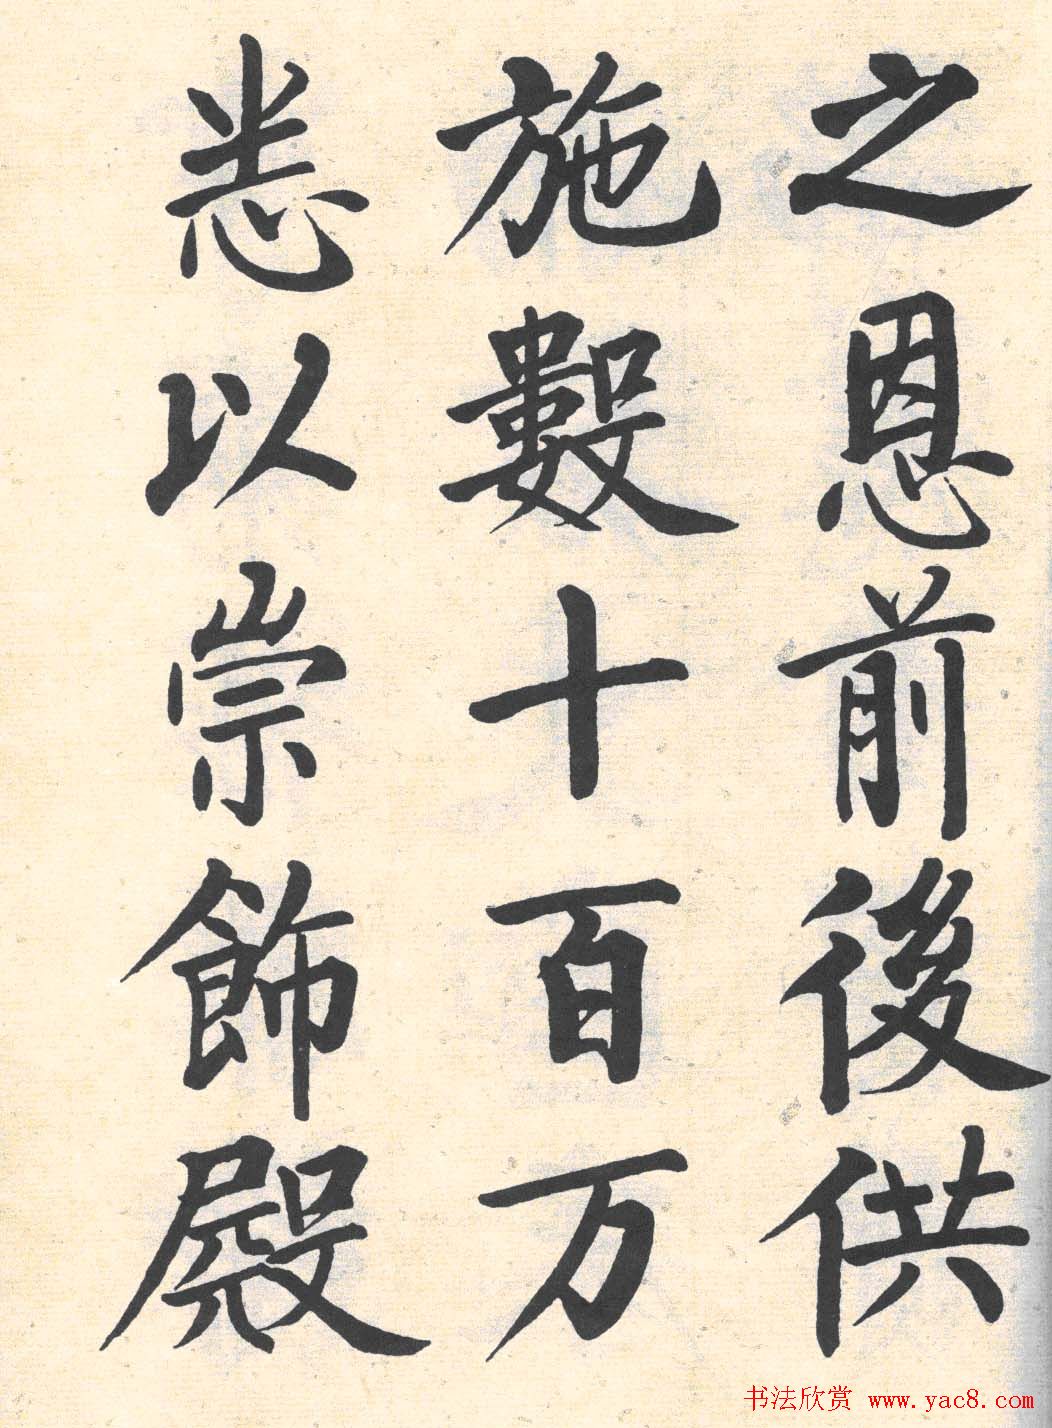 之恩前後供
施數十百万
悉以崇飾殿
书法欣赏 www.yac8.com